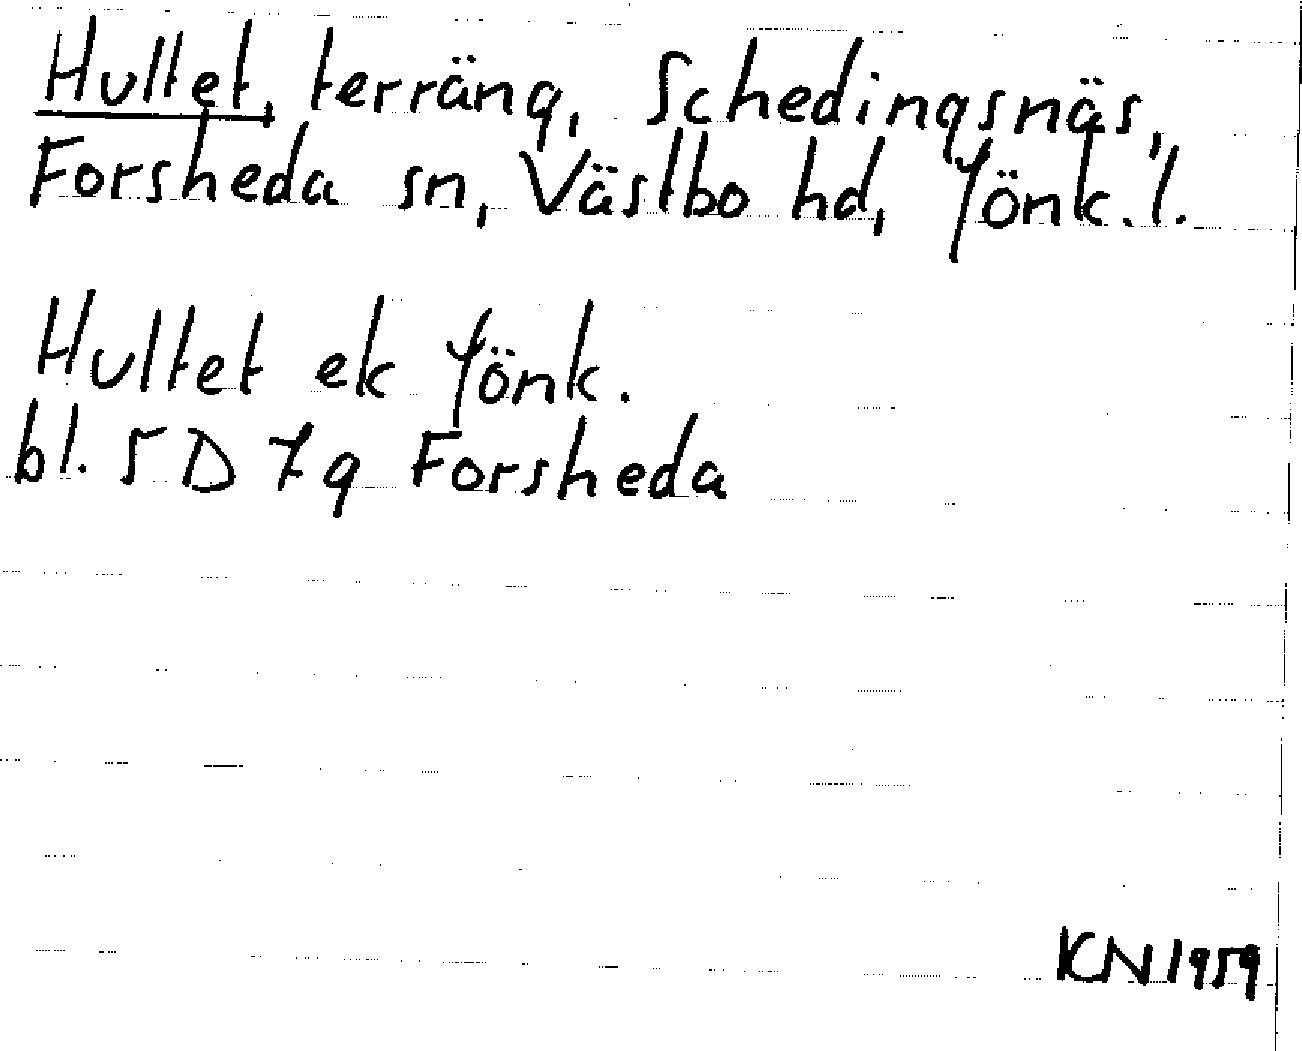 Hultet, terräng, Schedingsnäs,
Forsheda sn, Västbo hd, Jönk. l.
Hultet ek Jönk.
bl. 5 D 7 g Forsheda
KN 1959